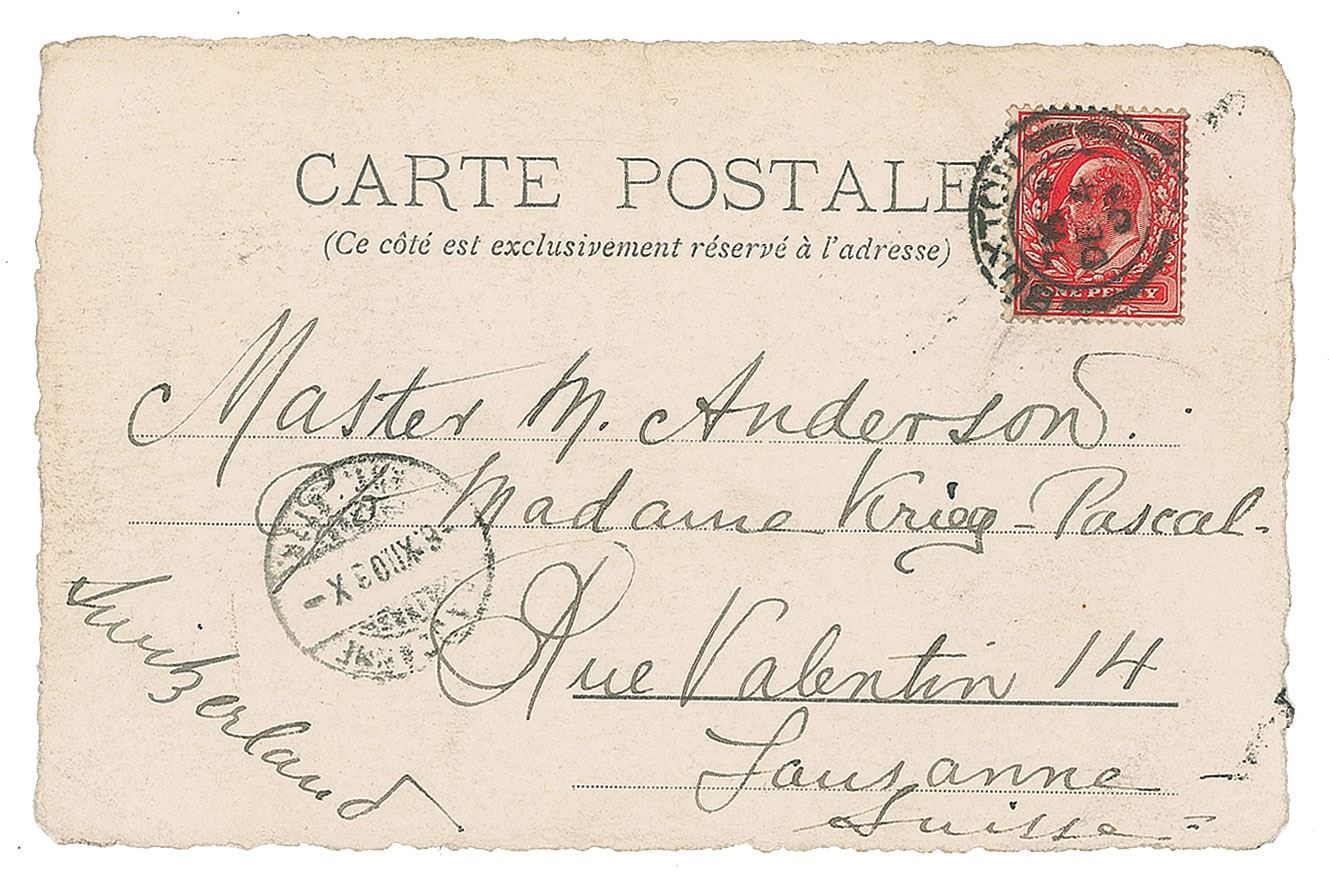 CARTE POSTALE
(Ce côté est exclusivement réservé à l'adresse)
BUXTON
DE 4
03
ONE PENNY
Master M. Anderson.
c/o Madame Krieg-Pascal-
8.XII.03.X-
Rue Valentin 14
Lausanne
Suisse
Switzerland